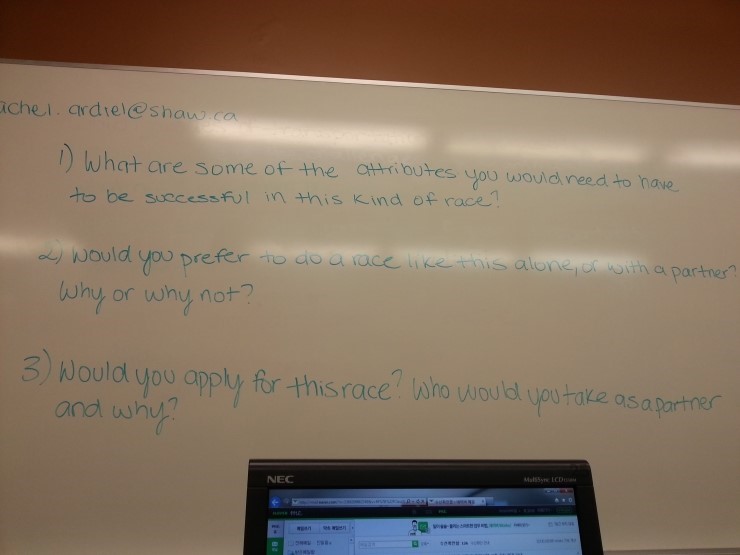 achel.ardiel@shaw.ca
1) What are some of the attributes you would need to have
to be successful in this kind of race?
2) Would you prefer to do a race like this alone, or with a partner?
Why or why not?
3) Would you apply for this race? Who would you take as a partner
and why?
NEC MultiSync